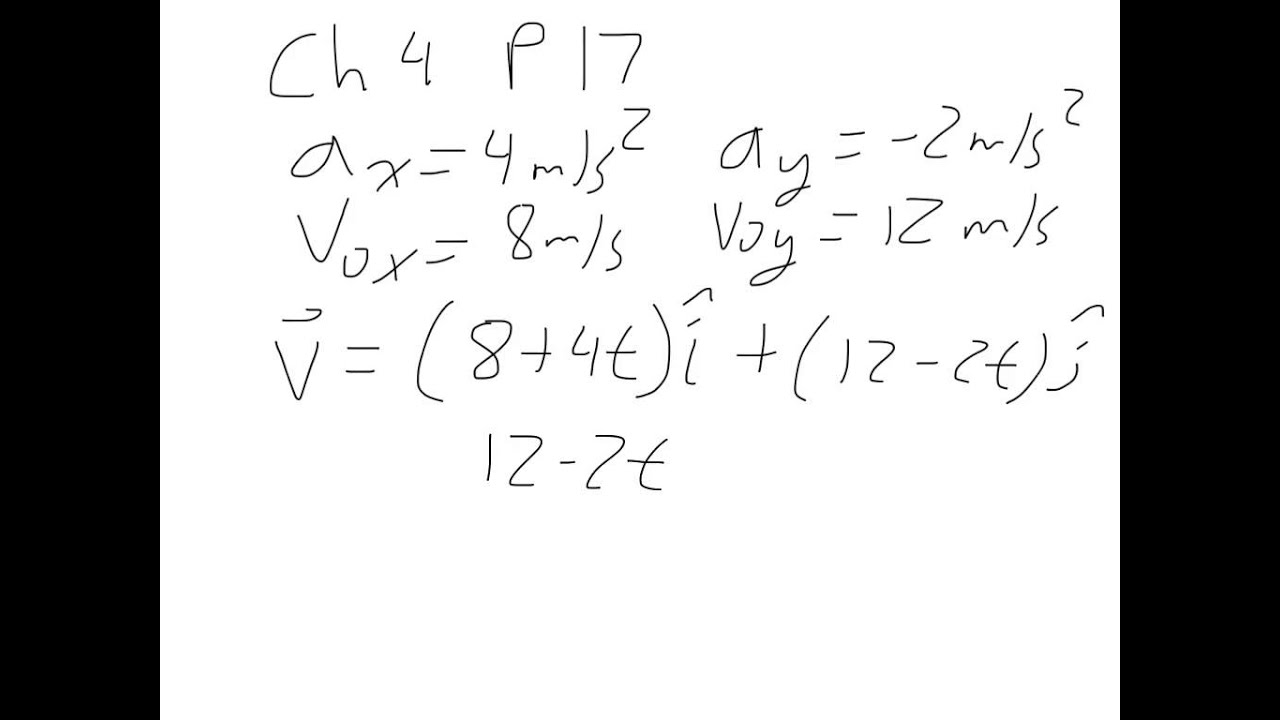 Ch 4 P 17
aₓ = 4 m/s² a_y = -2 m/s²
V₀ₓ = 8 m/s V₀_y = 12 m/s
V⃗ = (8+4t) î + (12-2t) ĵ
12-2t